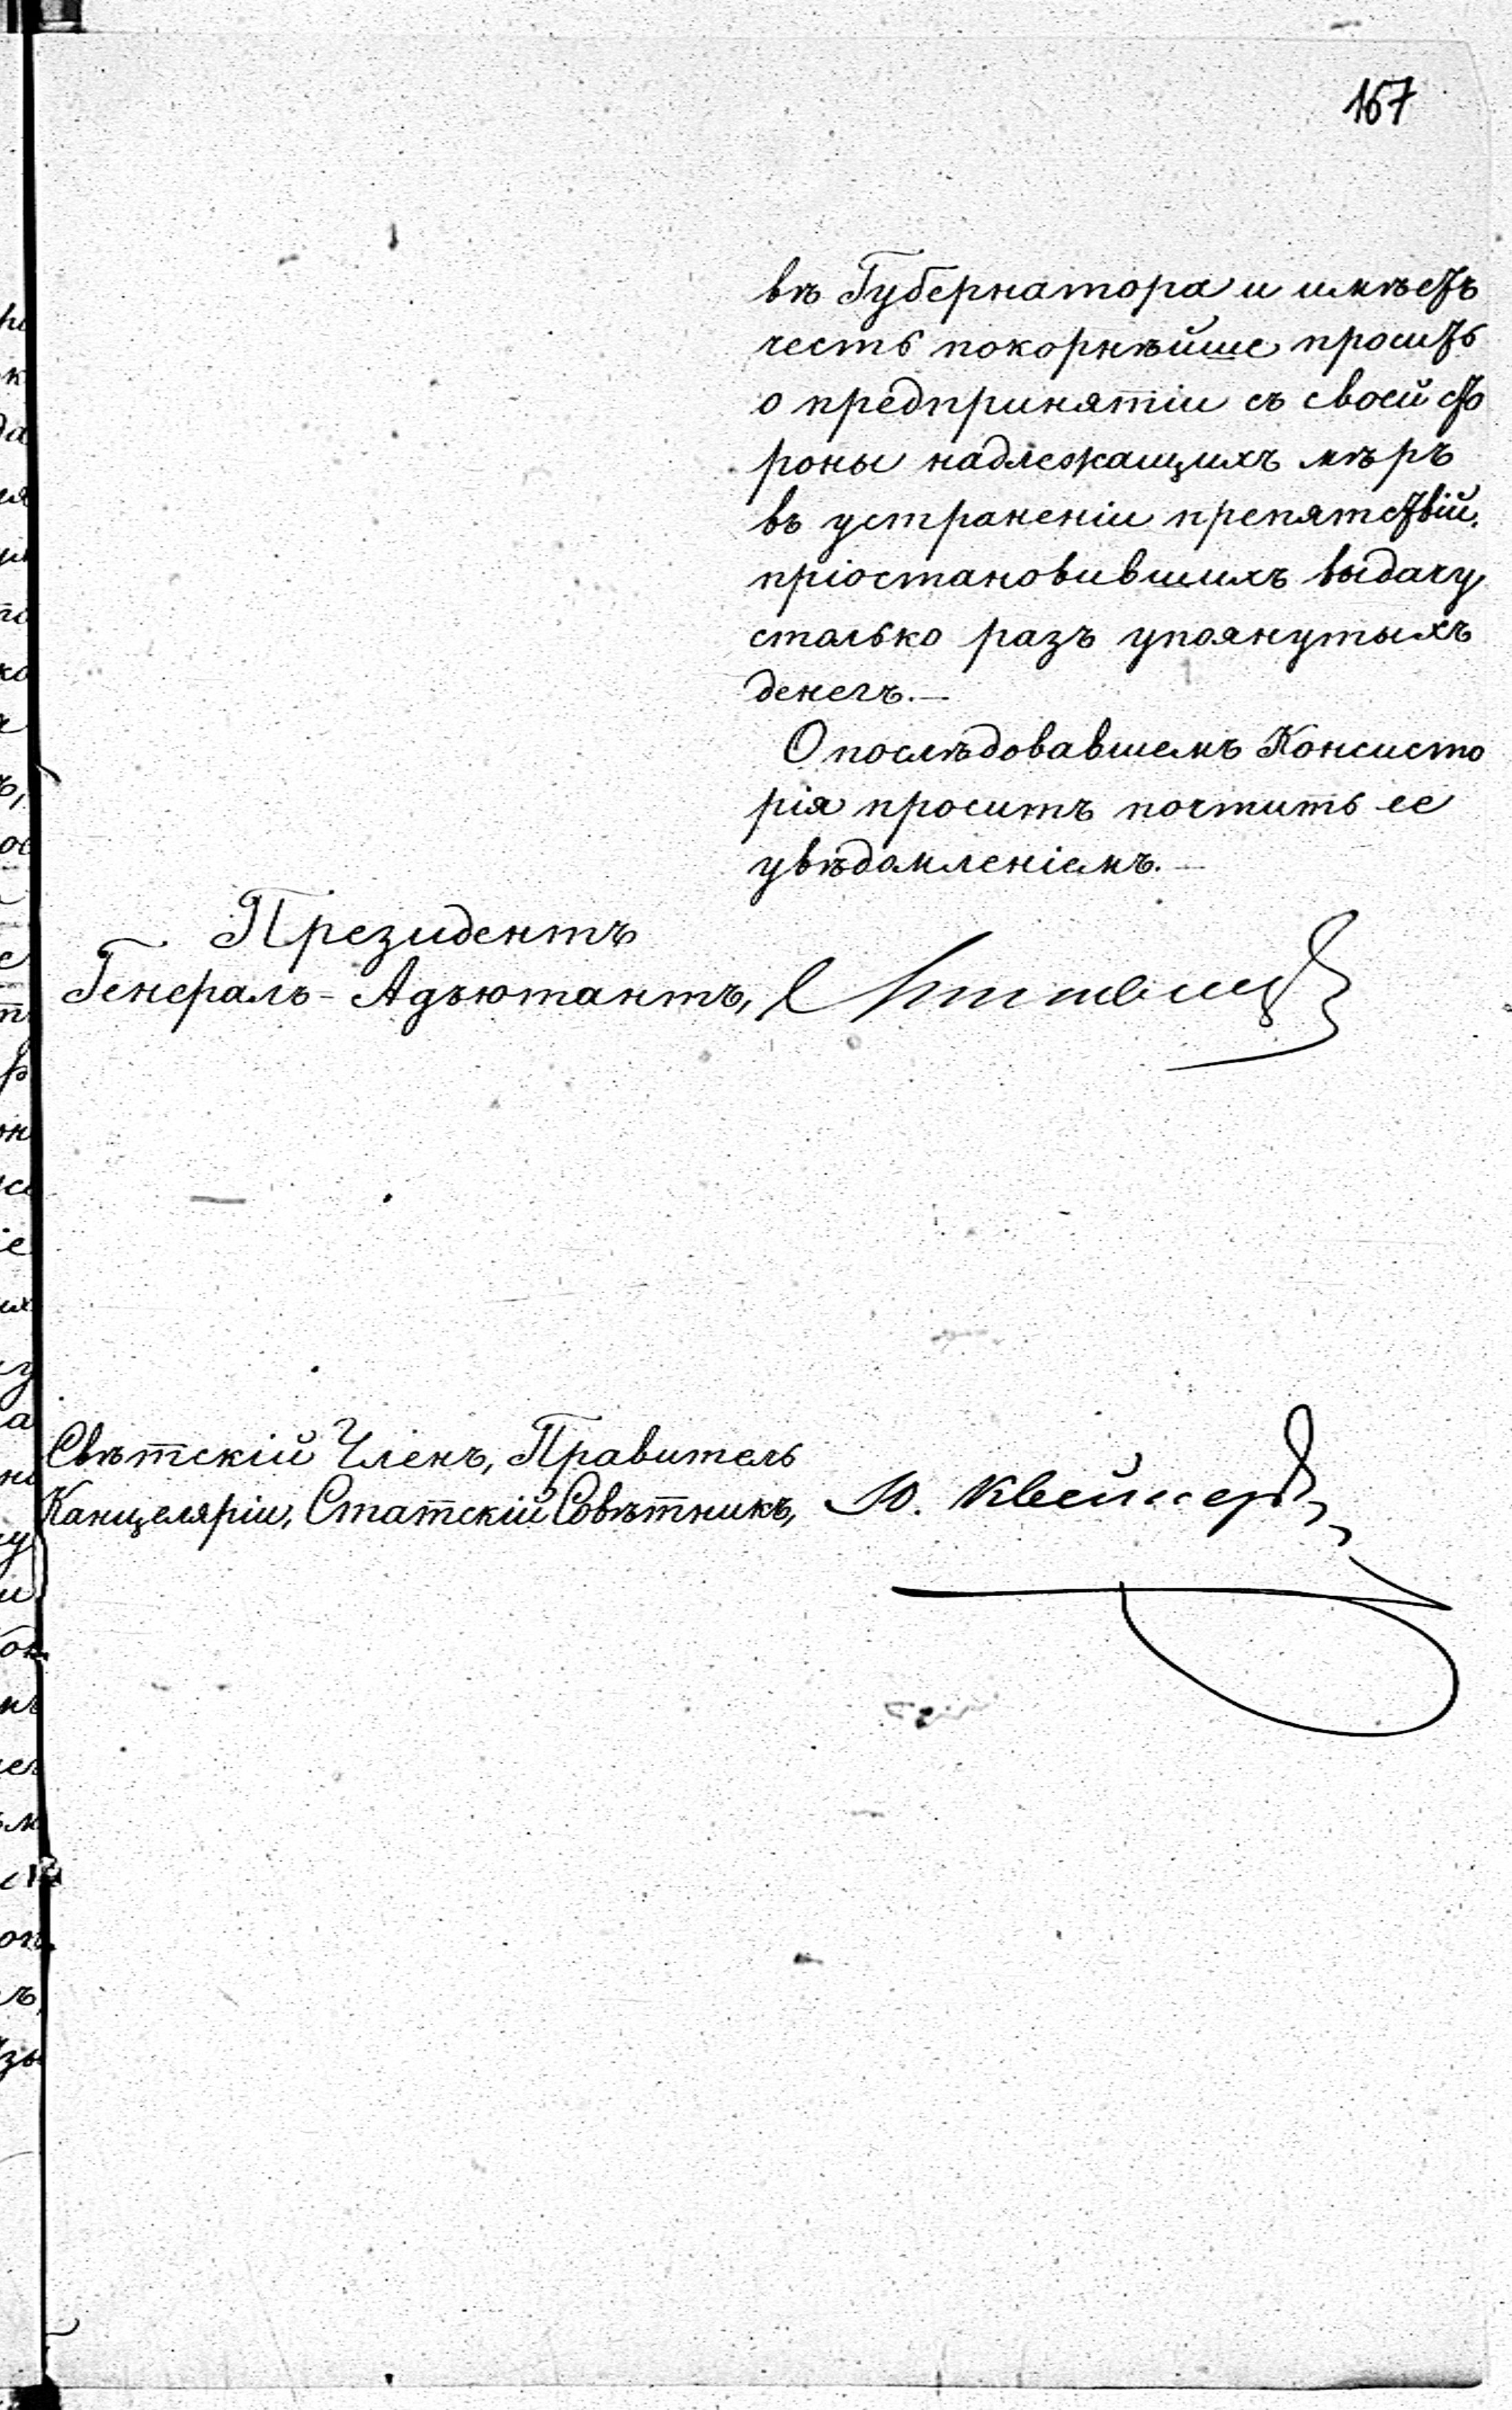 167
въ Губернатора и имѣетъ
честь покорнѣйше просить
о предпринятіи съ своей сто
роны надлежащихъ мѣръ
въ устраненіи препятствій,
пріостановившихъ выдачу
столько разъ упомянутыхъ
денегъ.—
О послѣдовавшемъ Консисто
рія проситъ почтить ее
увѣдомленіемъ.—
Президентъ
Генералъ-Адъютантъ,
Свѣтскій Членъ, Правитель
Канцеляріи, Статскій Совѣтникъ, Ю.